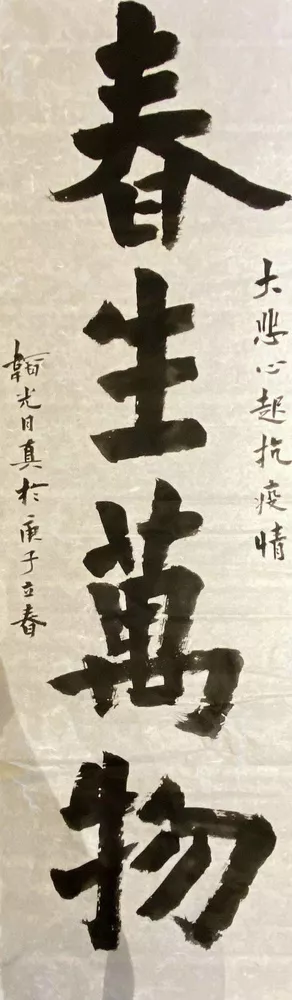 大悲心起抗疫情
春生萬物
光日真於庚子立春